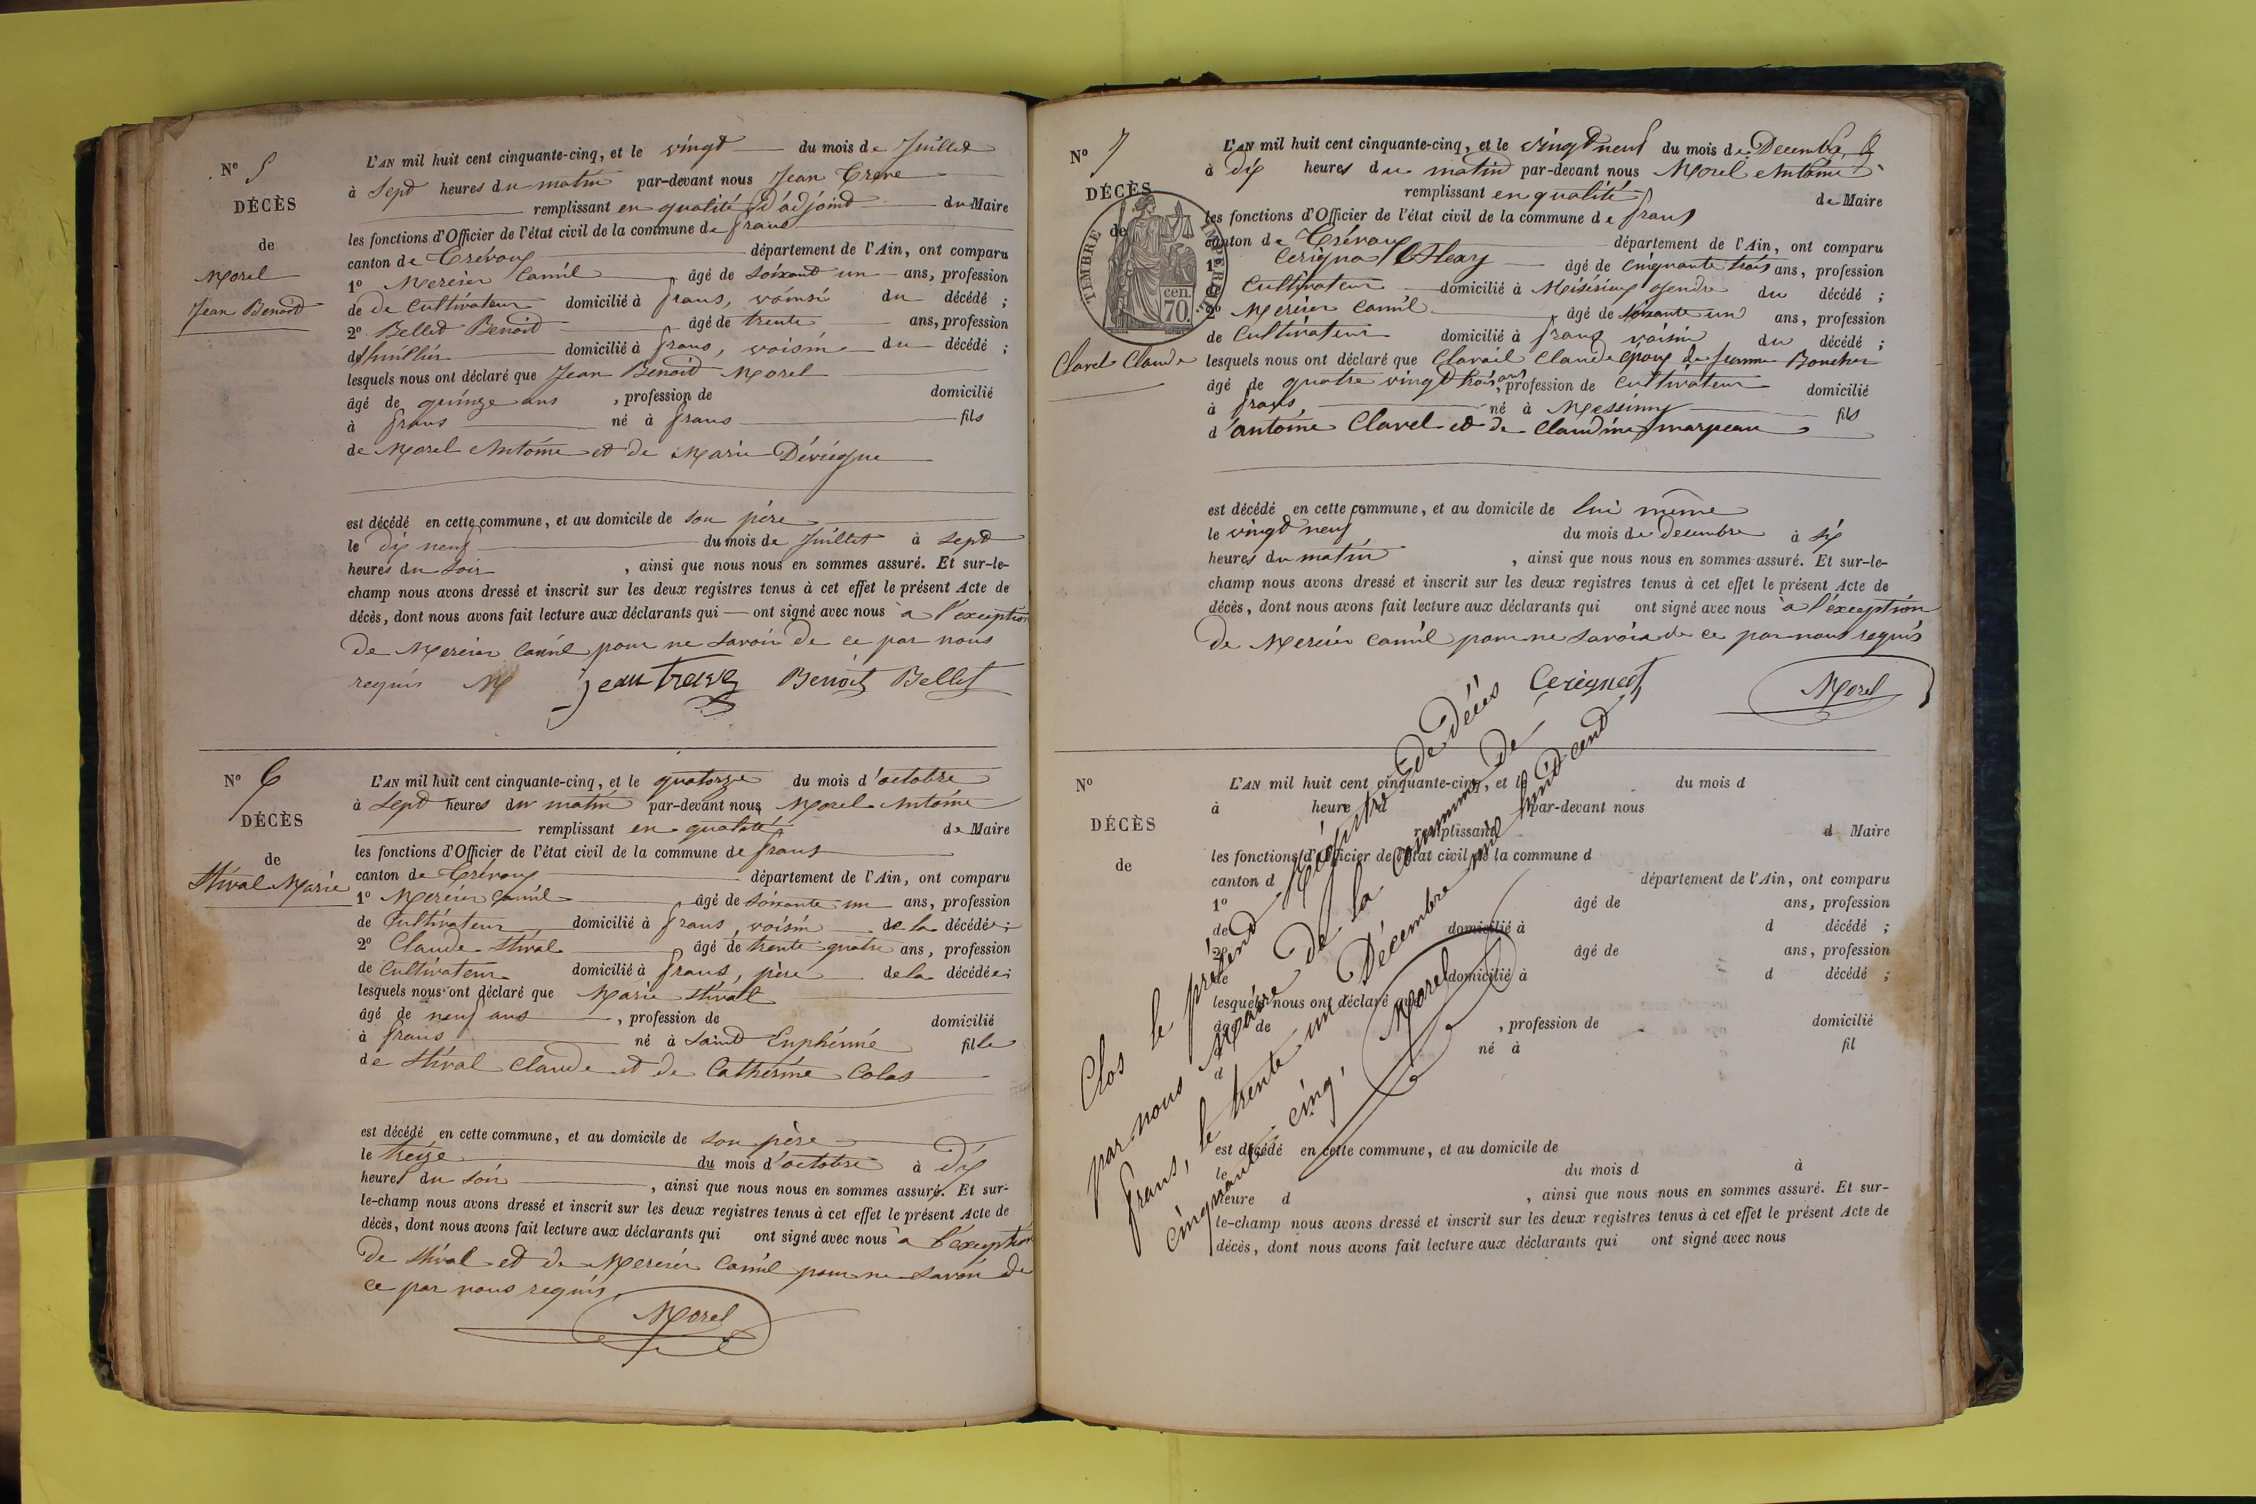 N° 5
DÉCÈS
de
Morel
Jean Benoit
L'AN mil huit cent cinquante-cinq, et le vingt du mois de Juillet
à sept heures du matin par-devant nous Jean Treve
remplissant en qualité d'adjoint du Maire
les fonctions d'Officier de l'état civil de la commune de frans
canton de Trévoux département de l'Ain, ont comparu
1° Mercier Camil âgé de soixante un ans, profession
de de Cultivateur domicilié à frans, voinsi du décédé ;
2° Bellet Benoit âgé de trente ans, profession
de domicilié à frans, voisin du décédé ;
lesquels nous ont déclaré que Jean Benoit Morel
âgé de quinze ans , profession de domicilié
à frans né à frans fils
de Morel Antoine et de Marie
est décédé en cette commune, et au domicile de son père
le dix neuf du mois de Juillet à sept
heures du soir , ainsi que nous nous en sommes assuré. Et sur-le-
champ nous avons dressé et inscrit sur les deux registres tenus à cet effet le présent Acte de
décès, dont nous avons fait lecture aux déclarants qui ont signé avec nous à l'exception
de Mercier Camil pour ne savoir de ce par nous
requis M Jean Treve Benoit Bellet
N° 6
DÉCÈS
de
Stival Marie
L'AN mil huit cent cinquante-cinq, et le quatorze du mois d'octobre
à sept heures du matin par-devant nous Morel Antoine
remplissant en qualité de Maire
les fonctions d'Officier de l'état civil de la commune de frans
canton de Trévoux département de l'Ain, ont comparu
1° Mercier Camil âgé de soixante un ans, profession
de Cultivateur domicilié à frans, voisin de la décédée ;
2° Claude Stival âgé de trente quatre ans, profession
de Cultivateur domicilié à frans, père de la décédée ;
lesquels nous ont déclaré que Marie Stival
âgé de neuf ans , profession de domicilié
à frans né à Saint Euphémie fille
de Stival Claude et de Cathérine Colas
est décédé en cette commune, et au domicile de son père
le treize du mois d'octobre à dix
heures du soir , ainsi que nous nous en sommes assuré. Et sur-
le-champ nous avons dressé et inscrit sur les deux registres tenus à cet effet le présent Acte de
décès, dont nous avons fait lecture aux déclarants qui ont signé avec nous à l'exception
de Stival et de Mercier Camil pour ne savoir de
ce par nous requis
Morel
N° 7
DÉCÈS
de
TIMBRE IMPERIAL
70 cen.
Clavel Claude
L'AN mil huit cent cinquante-cinq, et le vingt neuf du mois de Decembre
à dix heures du matin par-devant nous Morel Antoine
remplissant en qualité de Maire
les fonctions d'Officier de l'état civil de la commune de frans
canton de Trévoux département de l'Ain, ont comparu
1° âgé de cinquante trois ans, profession
Cultivateur domicilié à Misérieux gendre du décédé ;
2° Mercier Camil âgé de soixante un ans, profession
de Cultivateur domicilié à frans voisin du décédé ;
lesquels nous ont déclaré que Clavail Claude époux de Jeanne
âgé de quatre vingt trois ans, profession de cultivateur domicilié
à frans, né à Messimy fils
d'antoine Clavel et de Claudine
est décédé en cette commune, et au domicile de lui même
le vingt neuf du mois de decembre à six
heures du matin , ainsi que nous nous en sommes assuré. Et sur-le-
champ nous avons dressé et inscrit sur les deux registres tenus à cet effet le présent Acte de
décès, dont nous avons fait lecture aux déclarants qui ont signé avec nous à l'exception
de Mercier Camil pour ne savoir de ce par nous requis
Morel
N°
DÉCÈS
de
L'AN mil huit cent cinquante-cinq, et le du mois d
à heure d par-devant nous
remplissant d Maire
les fonctions d'Officier de l'état civil de la commune d
canton d département de l'Ain, ont comparu
1° âgé de ans, profession
de domicilié à d décédé ;
2° âgé de ans, profession
de domicilié à d décédé ;
lesquels nous ont déclaré que
âgé de , profession de domicilié
à né à fil
d
est décédé en cette commune, et au domicile de
le du mois d à
heure d , ainsi que nous nous en sommes assuré. Et sur-
le-champ nous avons dressé et inscrit sur les deux registres tenus à cet effet le présent Acte de
décès, dont nous avons fait lecture aux déclarants qui ont signé avec nous
Clos le présent Régistre de Décès
par nous Maire de la commune de
frans, le trente un Décembre mil huit cent
cinquante cinq.
Morel